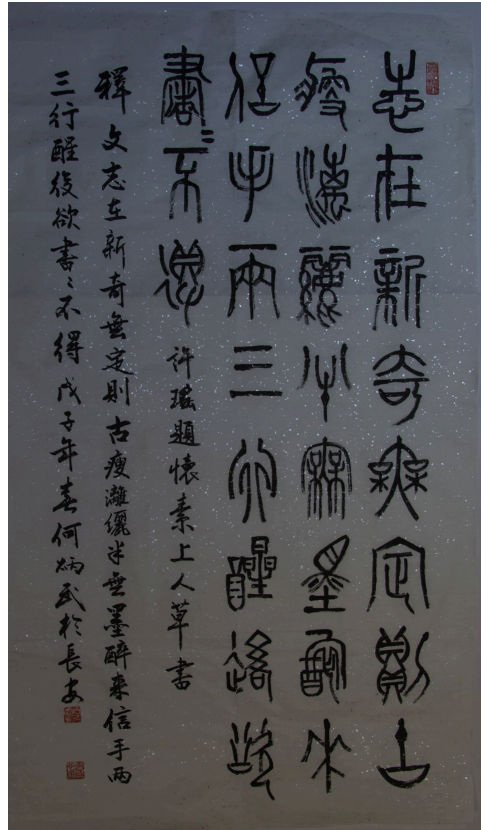 志在新奇無定則古
瘦漓纚半無墨醉來
信手兩三行醒後欲
書〻不得
許瑤題懷素上人草書
釋文志在新奇無定則古瘦灕纚半無墨醉來信手兩
三行醒後欲書〻不得戊子年春何炳武於長安